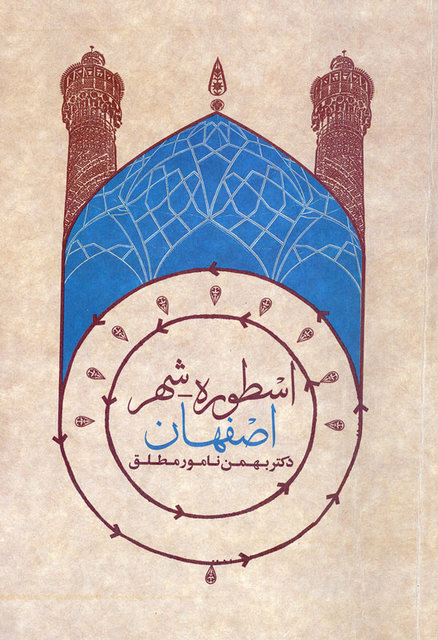 اسطوره‌ـشهر
اصفهان
دکتر بهمن نامور مطلق